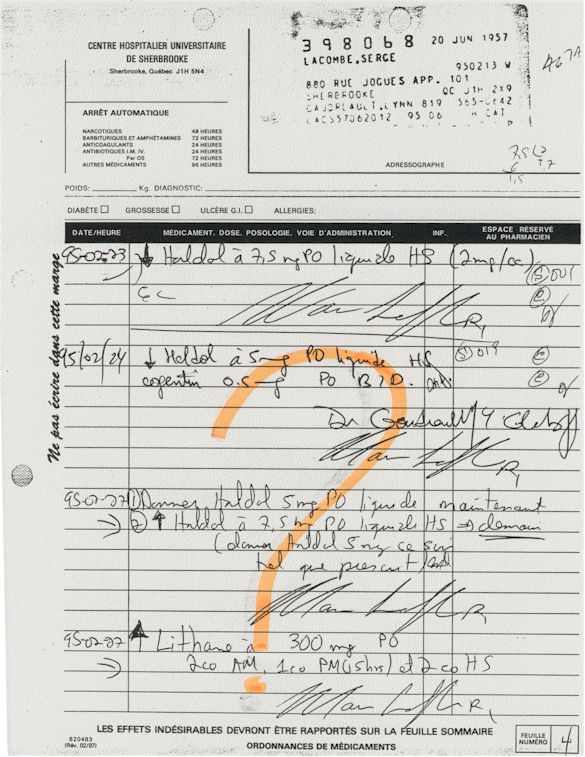 CENTRE HOSPITALIER UNIVERSITAIRE
DE SHERBROOKE
Sherbrooke, Québec J1H 5N4
398068 20 JUN 1957
LACOMBE, SERGE
950213 W
467A
880 RUE JOGUES APP. 101
SHERBROOKE QC J1H 2X9
LYNN 819
95 06
ARRÊT AUTOMATIQUE
NARCOTIQUES 48 HEURES
BARBITURIQUES ET AMPHÉTAMINES 72 HEURES
ANTICOAGULANTS 24 HEURES
ANTIBIOTIQUES I.M. IV. 24 HEURES
Par OS 72 HEURES
AUTRES MÉDICAMENTS 96 HEURES
ADRESSOGRAPHE
POIDS: Kg. DIAGNOSTIC:
DIABÈTE GROSSESSE ULCÈRE G.I. ALLERGIES:
DATE/HEURE MÉDICAMENT, DOSE, POSOLOGIE, VOIE D'ADMINISTRATION. INF. ESPACE RÉSERVÉ AU PHARMACIEN
Ne pas écrire dans cette marge
95-02-23 ↓ Haldol à 7,5 mg PO liquide HS (2mg/cc).
95/02/24 ↓ Haldol à 5 mg PO liquide HS
cogentin 0.5 mg PO BID.
Dr
95-02-27 1) Donner Haldol 5 mg PO liquide maintenant
2) ↑ Haldol à 7,5 mg PO liquide HS → demain
(donner Haldol 5 mg ce soir
tel que prescrit)
95-02-27 ↑ Lithane à 300 mg PO
2co AM, 1co PM (15hrs) et 2co HS
LES EFFETS INDÉSIRABLES DEVRONT ÊTRE RAPPORTÉS SUR LA FEUILLE SOMMAIRE
620483
(Rév. 02/87)
ORDONNANCES DE MÉDICAMENTS
FEUILLE NUMÉRO 4